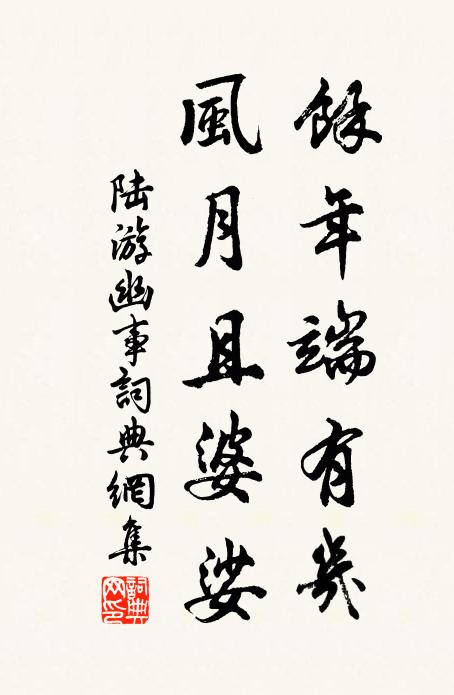 餘年端有幾
風月且婆娑
陸游幽事詞典網集
詞典網印